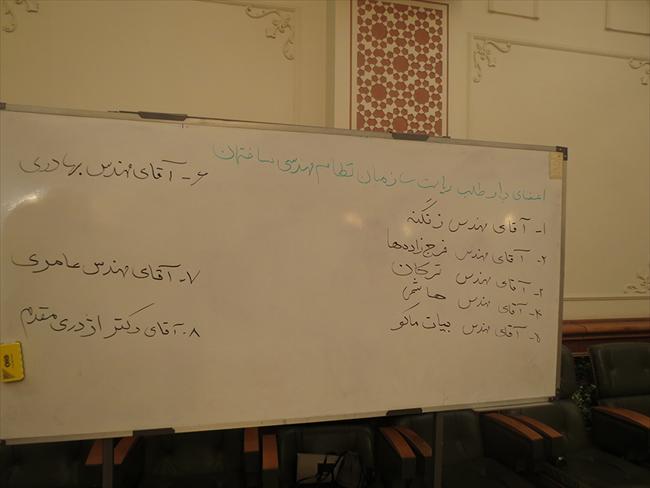 اعضای داوطلب ریاست سازمان نظام مهندسی ساختمان
۱- آقای مهندس زنگنه
۲- آقای مهندس فرج‌زاده‌ها
۳- آقای مهندس ترکان
۴- آقای مهندس هاشمی
۵- آقای مهندس بیات ماکو
۶- آقای مهندس بهادری
۷- آقای مهندس عامری
۸- آقای دکتر اژدری مقدم